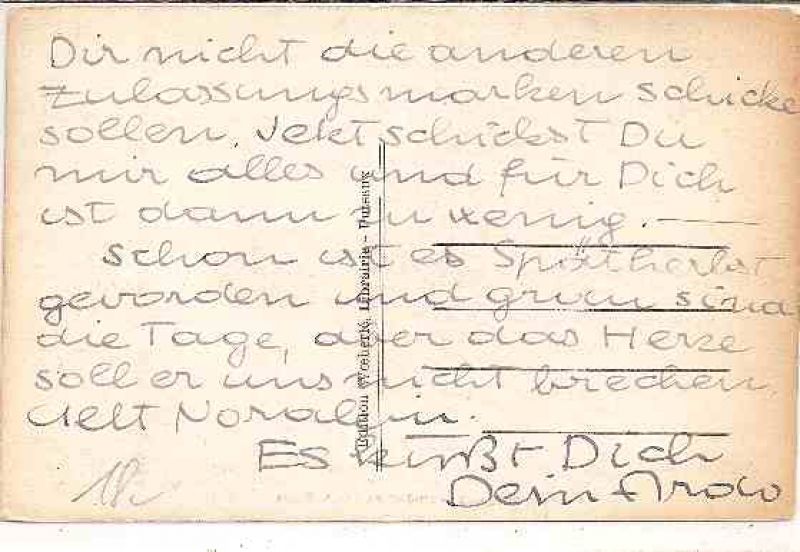 Dir nicht die anderen
Zulassungsmarken schicke
sollen. Jekt schickst Du
mir alles und für Dich
ist dann zu wenig. —
Schon ist es Spätherbst
geworden und grun sind
die Tage, aber das Herze
soll er uns nicht brechen.
Gelt
Es küßt Dich
Dein
Librairie -